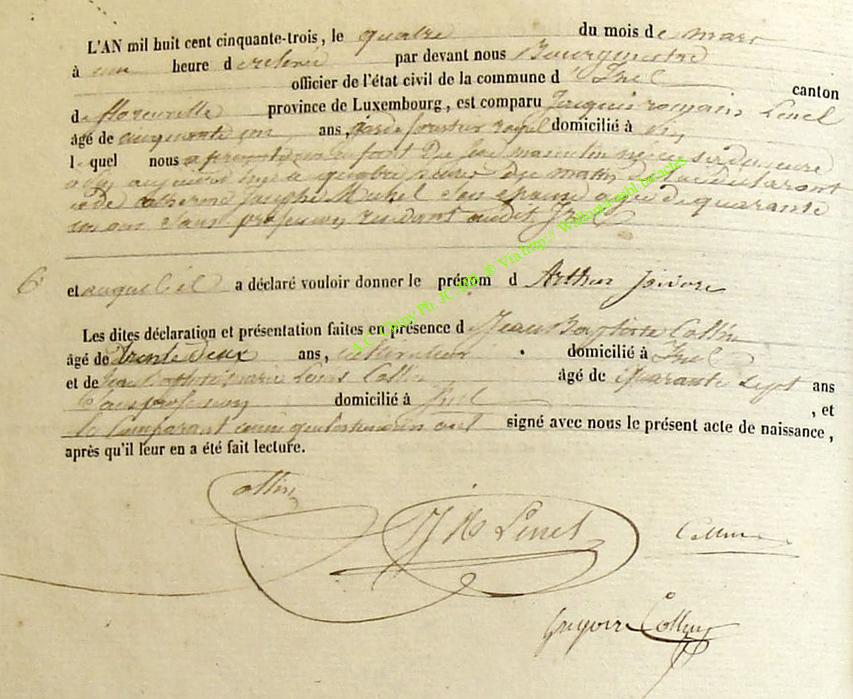 L'AN mil huit cent cinquante-trois, le quatre du mois de mars
à une heure de relevée par devant nous Bourgmestre
officier de l'état civil de la commune d' Izel canton
de Florenville province de Luxembourg, est comparu Jacques romain Lenel
âgé de cinquante un ans, garde forestier royal domicilié à Izel
lequel nous a présenté un enfant Du sexe masculin né en sa demeure
à Izel aujourd'hui à quatre heures du matin de lui déclarant
et de catherine Josephe Michel son épouse agée de quarante
un ans sans profession résidant audit Izel
6 et auquel il a déclaré vouloir donner le prénom d Arthur
Les dites déclaration et présentation faites en présence de Jean Baptiste Collin
âgé de trente deux ans, cultivateur domicilié à Izel
et de Louis Collin âgé de quarante sept ans
sans profession domicilié à Izel , et
le Comparant ainsi que les témoins ont signé avec nous le présent acte de naissance,
après qu'il leur en a été fait lecture.
Collin
J R Lenel
Collin
Grégoire Collin